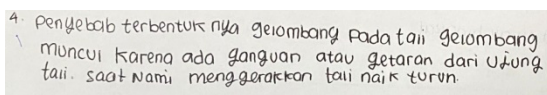 4. Penyebab terbentuknya gelombang pada tali gelombang
muncul karena ada ganguan atau getaran dari ujung
tali. saat Nami menggerakkan tali naik turun.